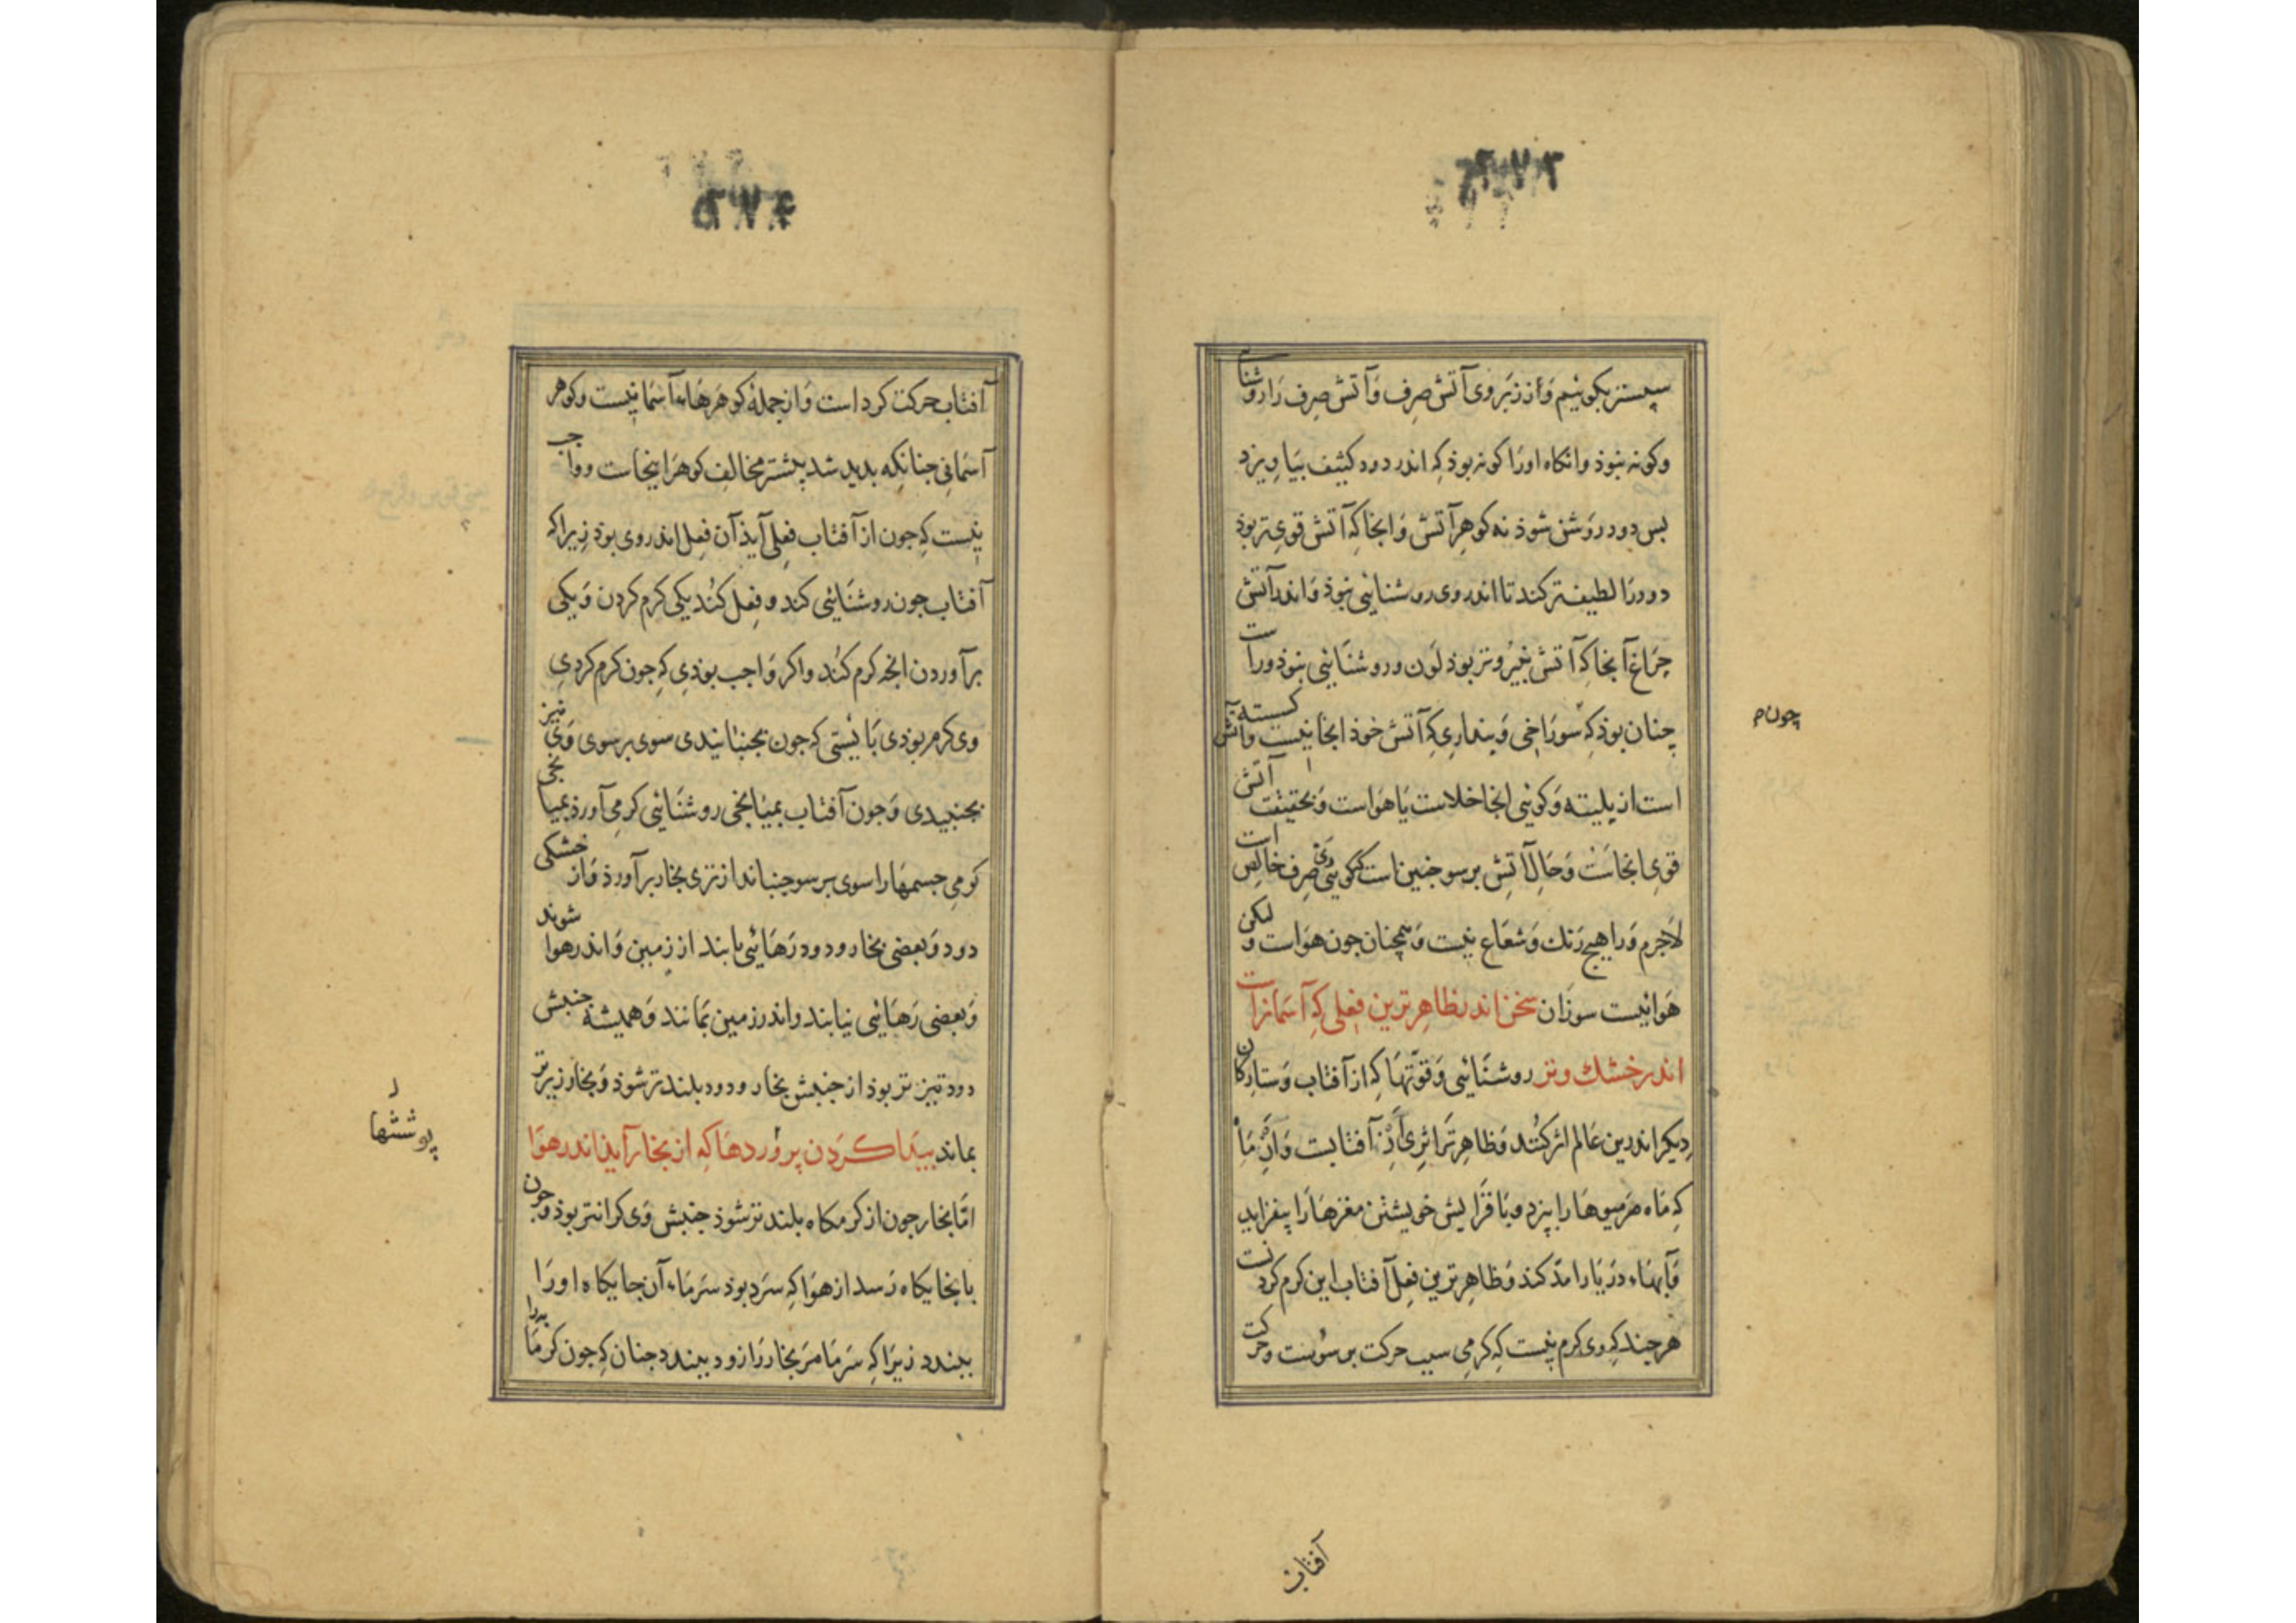 سپستر بکوئیم وَاز زبر وی آتش صِرف وَآتش صِرف رَا روشنا
وکونه نبوذ وانکاه اورَا کونه بوذ کِه اندر دود کثیف بیَاویزد
بس دود روَشن شوذ نه کوهرِ آتش وَانجا کِه آتش قوی تر بوذ
دود رَا لطیف تر کند تا اندر وی روشنایی نبوذ وَاندر آتش
چرَاغ آنجا کِه آتش نیرو تر بوذ لَون وروشنَایی نبوذ وراست
چنان بوذ کِه سورَاخی وَپنداری کِه آتش خوذ انجا نیست وآتش کسسته
چون م
است از پلیته وَکوئی انجا خلاست یَا هَواست وَبحقیقت آتش
قوی انجاست وَحَال آتش برسو چنین است کوئی صِرف خالص است
لاجرم وَرا هیچ رَنک وَشعَاع نیست وَهمچنان چون هوَاست ولیکن
هَوائیست سوزَان سخن اندر ظاهِر ترین فعلی کِه آسمانراست
اندر خشک وتر روشنَائی وَقوّتهَا کِه از آفتاب وَستارکان
دیکر اندرین عَالم اثر کنُند وَظاهِر ترَ اثری آنِ آفتابست وَآنِ مَاه
کِه مَاه مَر میوهَا را بپزد وبَافزَایش خویشتن مغزهَا رَا بیفزاید
وَآبهَاء درَیَا را مدّ کند وَظاهِر ترین فعِل آفتاب این کرم کردنست
هر چند کِه وی کرم نیست کِه کرمی سبب حرکت برسوُست وحرکت
آفتاب
آفتاب حرکت کرد است وَاز جمله کوهَرهَاء آسمَانیست وکوهر
آسَمانی چنانکه بدید شد پیشتر مخالف کوهرَ اینجاست وواجب
نیست کِه چون از آفتاب فعِلی آیذ آن فعِل اندر وی بوذ زیرا که
آفتاب چون روشنَائی کند دو فعِل کنُد یکی کرم کردن وَیکی
برآوردن آنچه کرم کنُد واکر وَاجب بوذی کِه چون کرم کردی
وی کرم بوذی بَایَستی که چون بجنبانیدی سوی برسوی وَی نیز
بجنبیدی وَچون آفتاب بمیَانجی روشنَائی کرمی آورد بمیانجی
کرمی جسمهَا را سوی برسو جنباند از تری بخار برآورذ وَاز خشکی
دود وَبعضی بخار ودود رَهَائی یابند از زمین وَاندر هوا شوند
وَبعضی رَهَائی نیابند واندر زمین بمَانند وَهمیشه جنبش
دود تیز تر بوذ از جنبش بخار ودود بلند تر شوذ وَبخار زیرتر
بماند پیَدا کردَن پروَردهَا کِه از بخار آیذ اندر هوَا
پوششها
امّا بخار چون از کرمکاه بلند تر شوذ جنبش وَی کرانتر بوذ وچون
بانجایکاه رَسد از هوَا کِه سرَد بوذ سَرمَاء آن جایکاه او رَا
ببندد زیرَا کِه سَرمَا مَر بخار رَا زود ببندد چنان کِه چون کرمَا